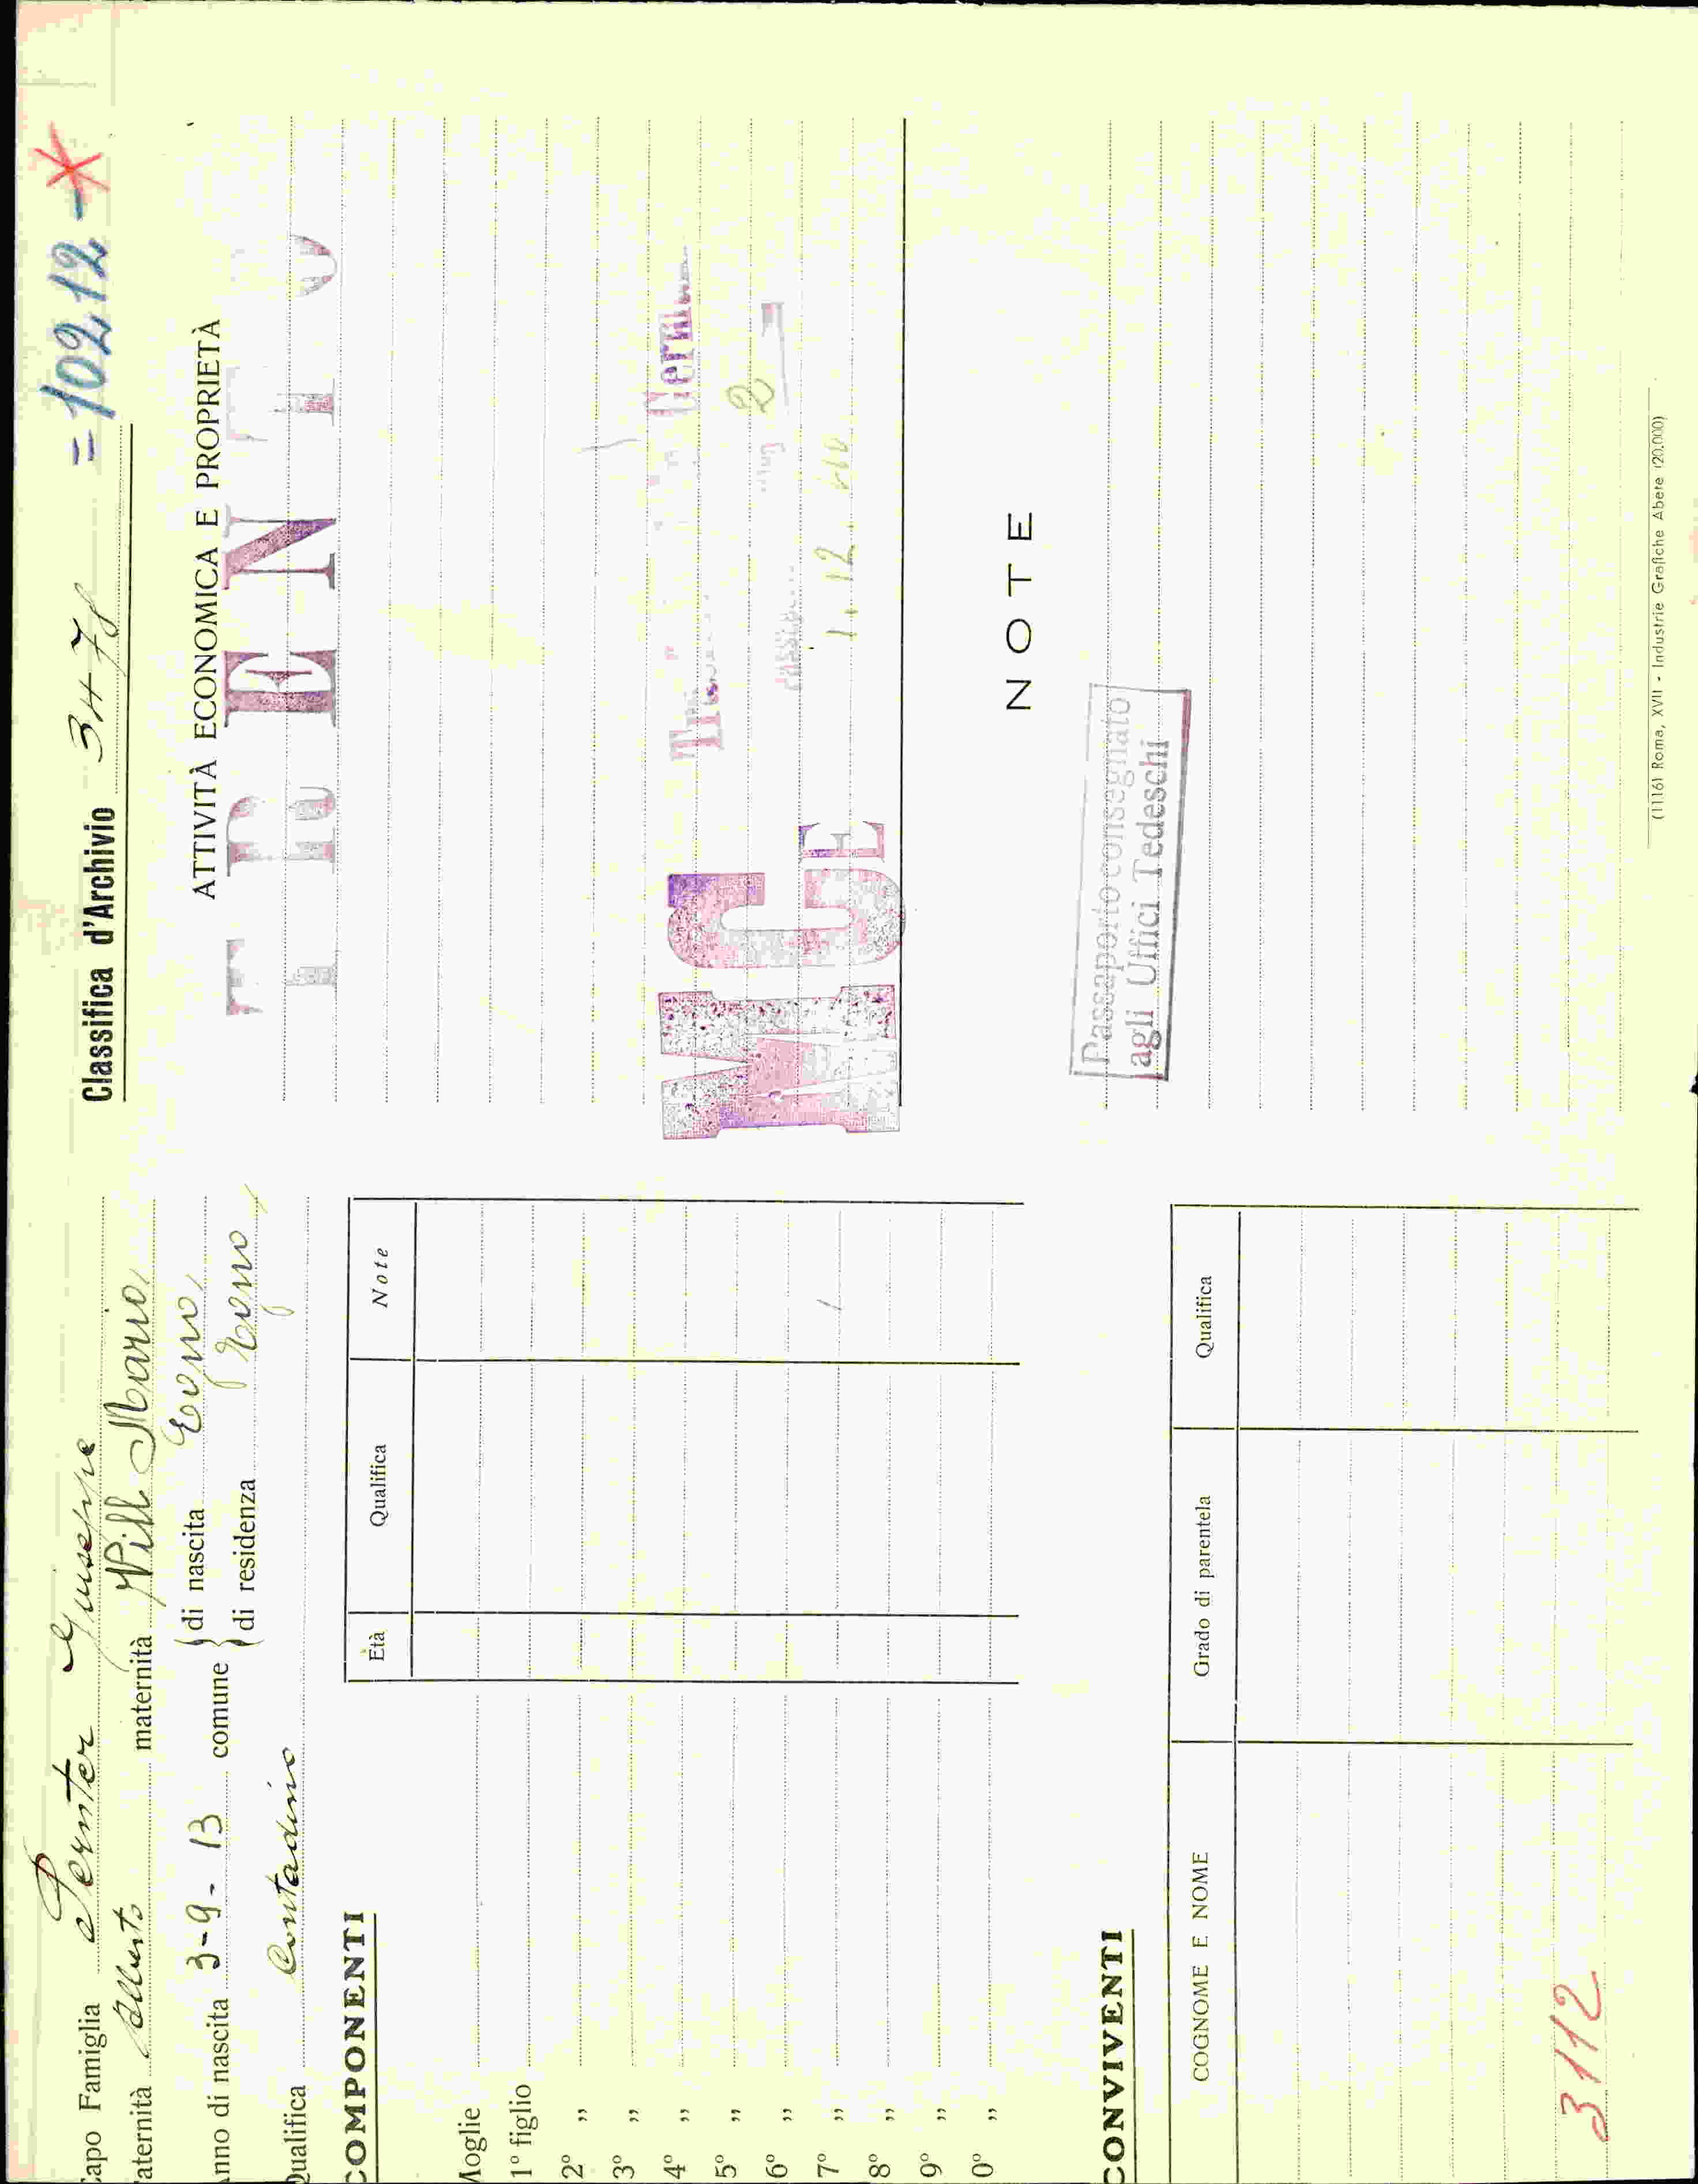 Capo Famiglia Pernter Giuseppe
Paternità Alberto maternità Pill Maria
Anno di nascita 3-9-13 comune { di nascita Egna
{ di residenza Egna
Qualifica Contadino
COMPONENTI
Età Qualifica Note
Moglie
1° figlio
2° „
3° „
4° „
5° „
6° „
7° „
8° „
9° „
10° „
CONVIVENTI
COGNOME E NOME Grado di parentela Qualifica
3112
Classifica d'Archivio 3478 = 10212 -
ATTIVITÀ ECONOMICA E PROPRIETÀ
TRENTO
MCE
2
1.12.
NOTE
Passaporto consegnato
agli Uffici Tedeschi
(1116) Roma, XVII - Industrie Grafiche Abete (20.000)